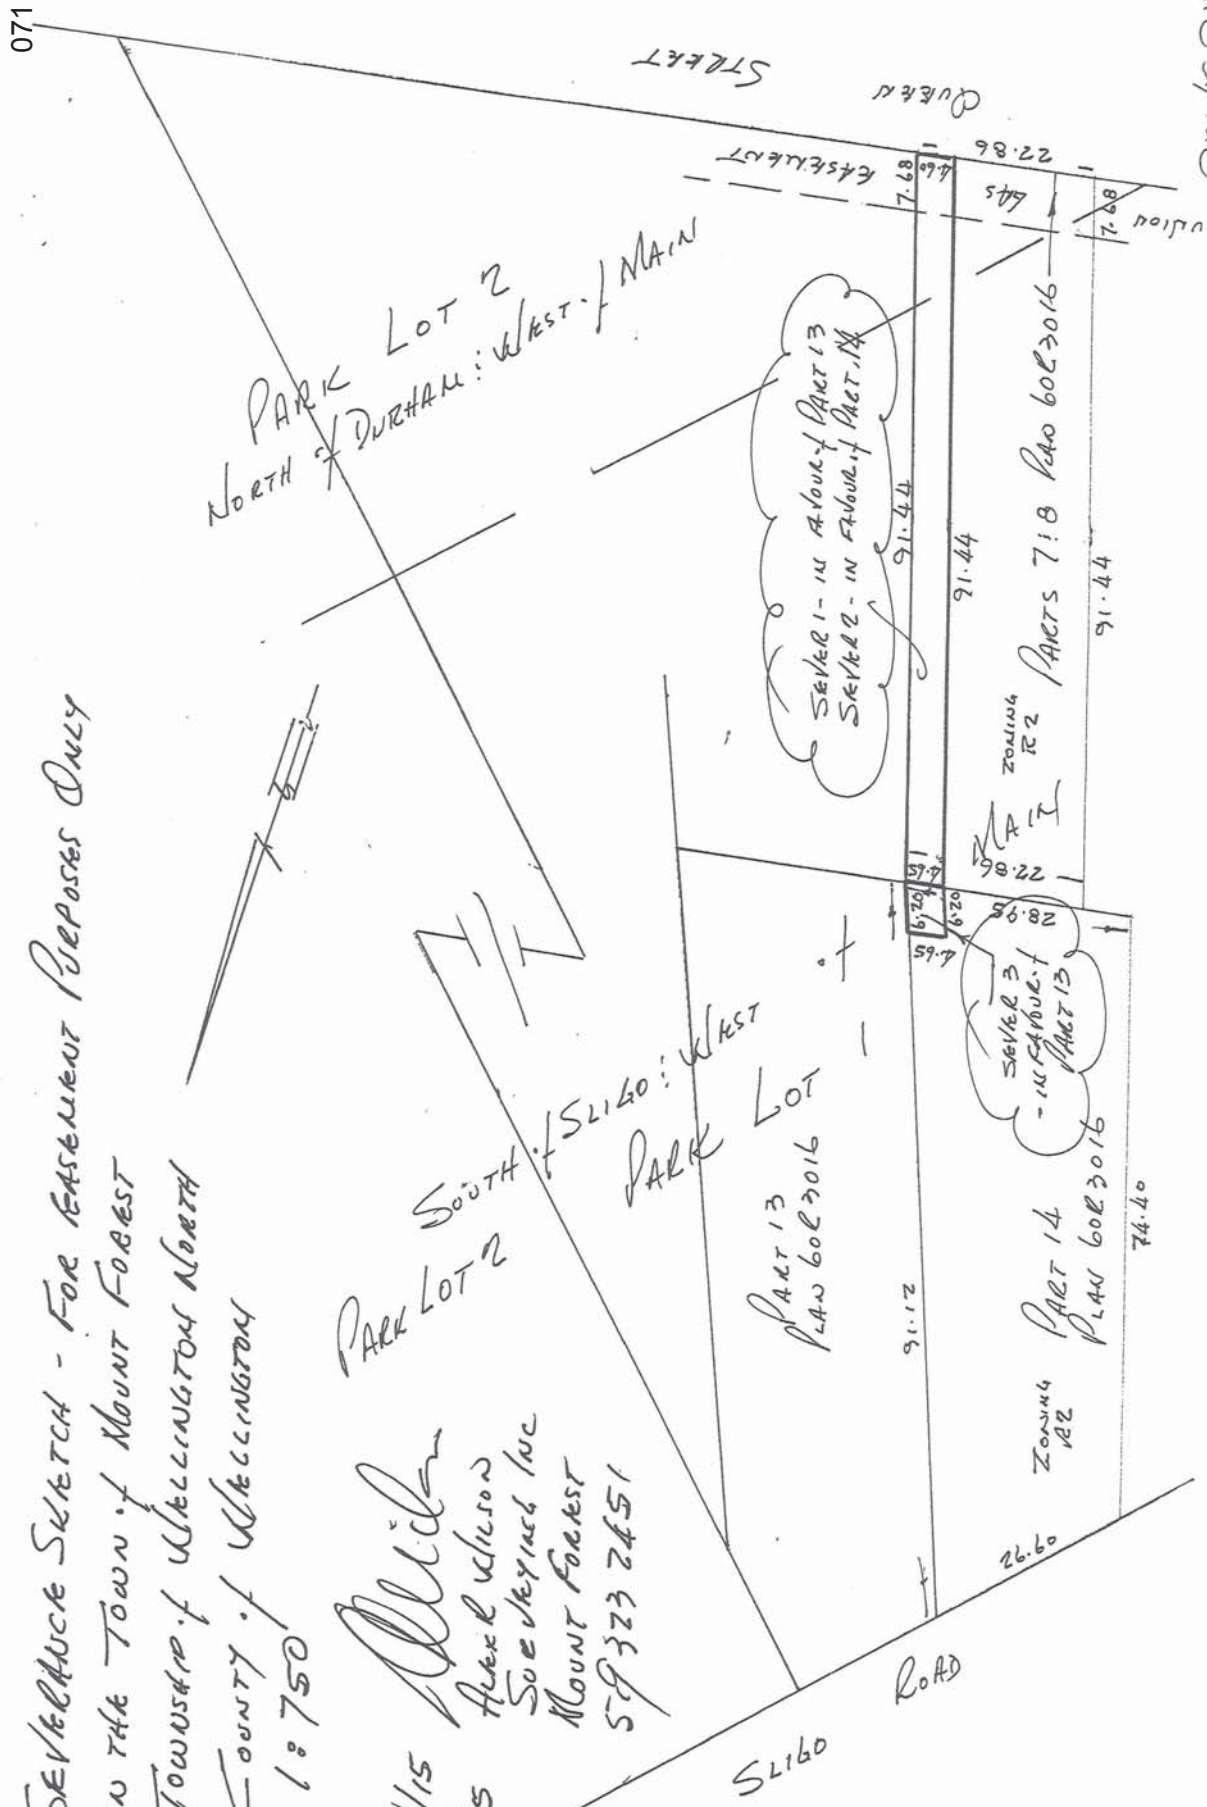 071
SEVERANCE SKETCH - FOR EASEMENT PURPOSES ONLY
IN THE TOWN of MOUNT FOREST
TOWNSHIP of WELLINGTON NORTH
COUNTY of WELLINGTON
1:750
ALEX WILSON
SURVEYING INC
MOUNT FOREST
519 323 2451
PARK LOT 2
NORTH of DURHAM: WEST of MAIN
PARK LOT 2
SOUTH of SLIGO: WEST of MAIN
PARK LOT 1
QUEEN STREET
EASEMENT
GAS
UNION
7.68
4.60
22.86
7.68
SEVER 1 - IN FAVOUR of PART 13
SEVER 2 - IN FAVOUR of PART 14
91.44
91.44
PARTS 7:8 PLAN 60R3016
ZONING
R2
91.44
4.65
22.86
9.20
9.20
4.65
28.95
SEVER 3
- IN FAVOUR of
PART 13
PART 13
PLAN 60R3016
91.12
ZONING
R2
PART 14
PLAN 60R3016
74.40
26.60
SLIGO ROAD